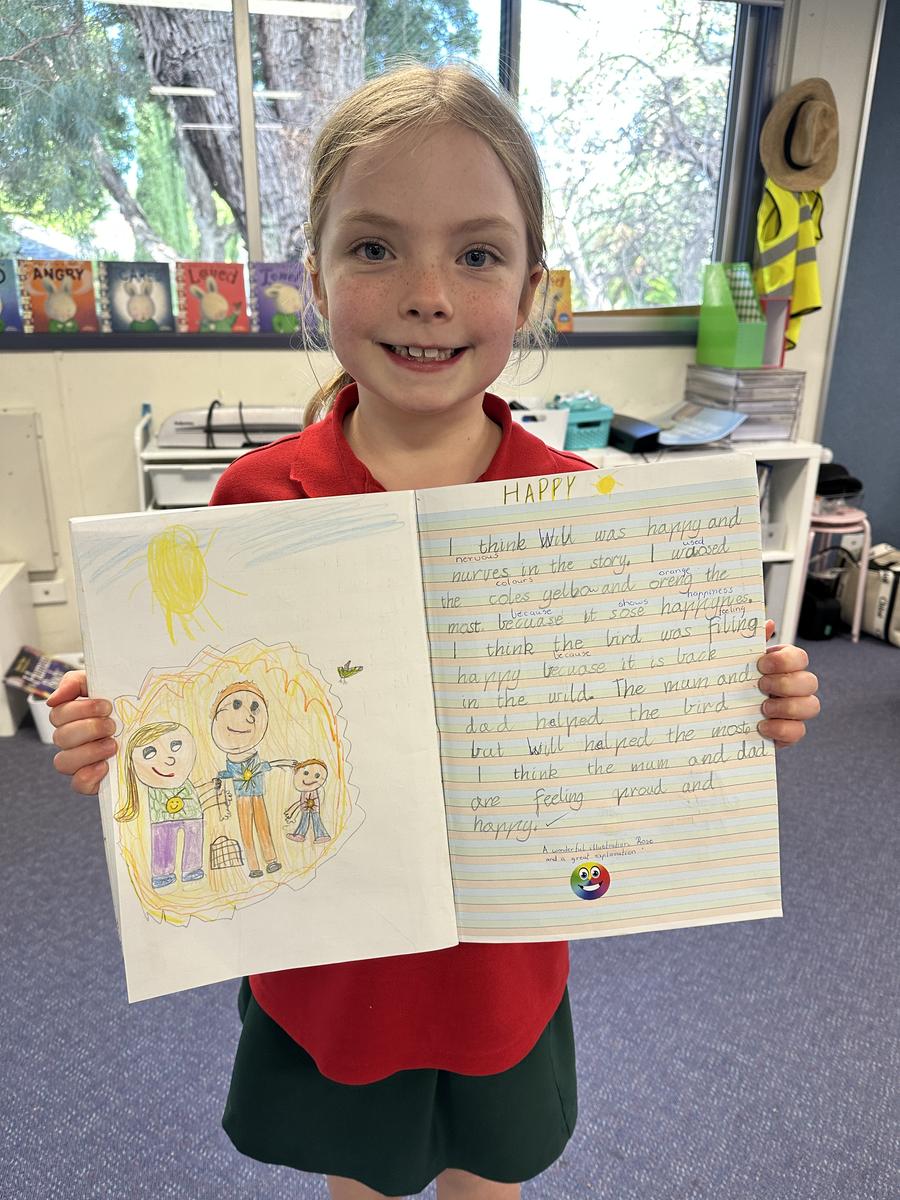 ANGRY
Loved
HAPPY
I think Will was happy and
nervous
nurves in the story. I used
the coles yelbow and oreng the
colours
orange
most. becuase it sose happynes.
because
shows
happiness
I think the bird was filing
feeling
happy becuase it is back
because
in the wild. The mum and
dad helped the bird
but Will helped the most.
I think the mum and dad
are feeling proud and
happy. ✓
A wonderful illustration Rose
and a great explanation